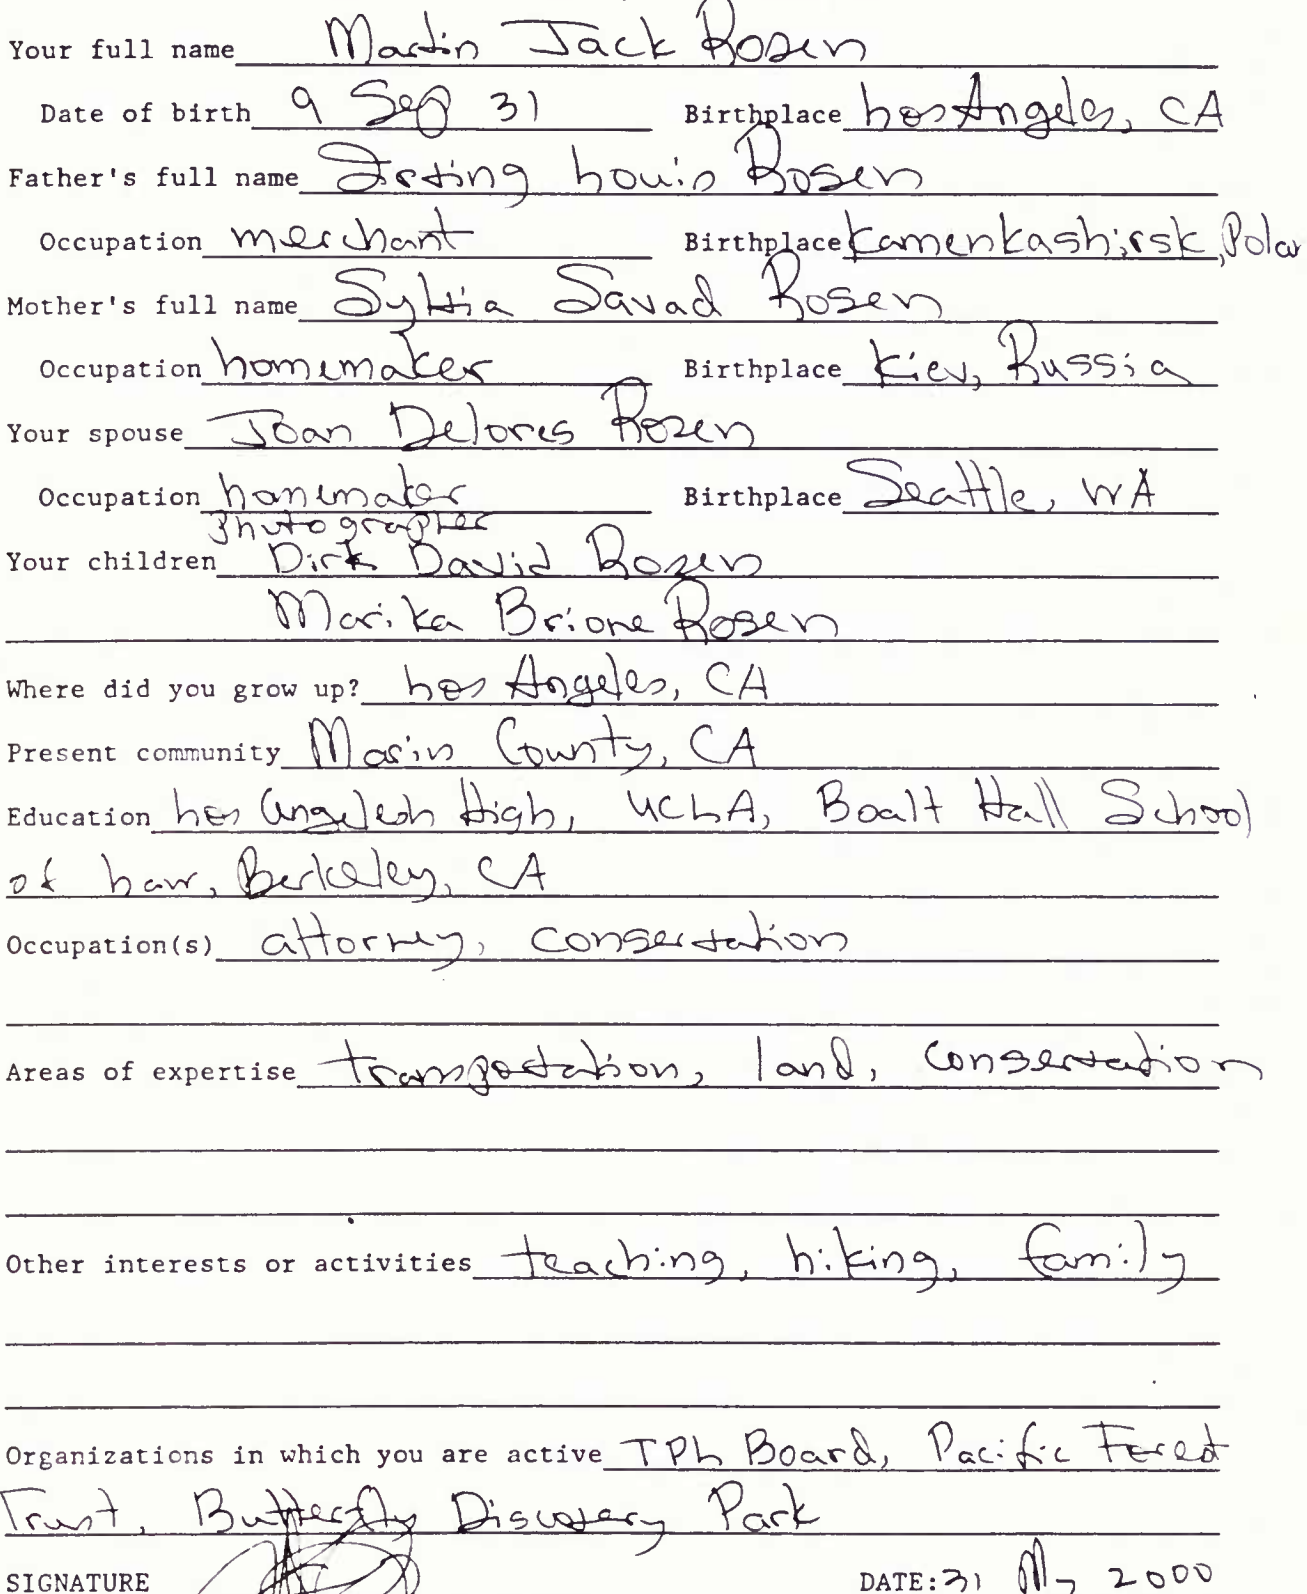 Your full name Martin Jack Rosen
Date of birth 9 Sep 31 Birthplace Los Angeles, CA
Father's full name Irving Louis Rosen
Occupation merchant Birthplace Kamenkashirsk, Polan
Mother's full name Sylvia Savad Rosen
Occupation homemaker Birthplace Kiev, Russia
Your spouse Joan Delores Rosen
Occupation homemaker Birthplace Seattle, WA
Photographer
Your children Dirk David Rosen
Marika Brione Rosen
Where did you grow up? Los Angeles, CA
Present community Marin County, CA
Education Los Angeles High, UCLA, Boalt Hall School
of Law, Berkeley, CA
Occupation(s) attorney, conservation
Areas of expertise transportation, land, conservation
Other interests or activities teaching, hiking, family
Organizations in which you are active TPL Board, Pacific Forest
Trust, Butterfly Discovery Park
SIGNATURE DATE: 31 My 2000